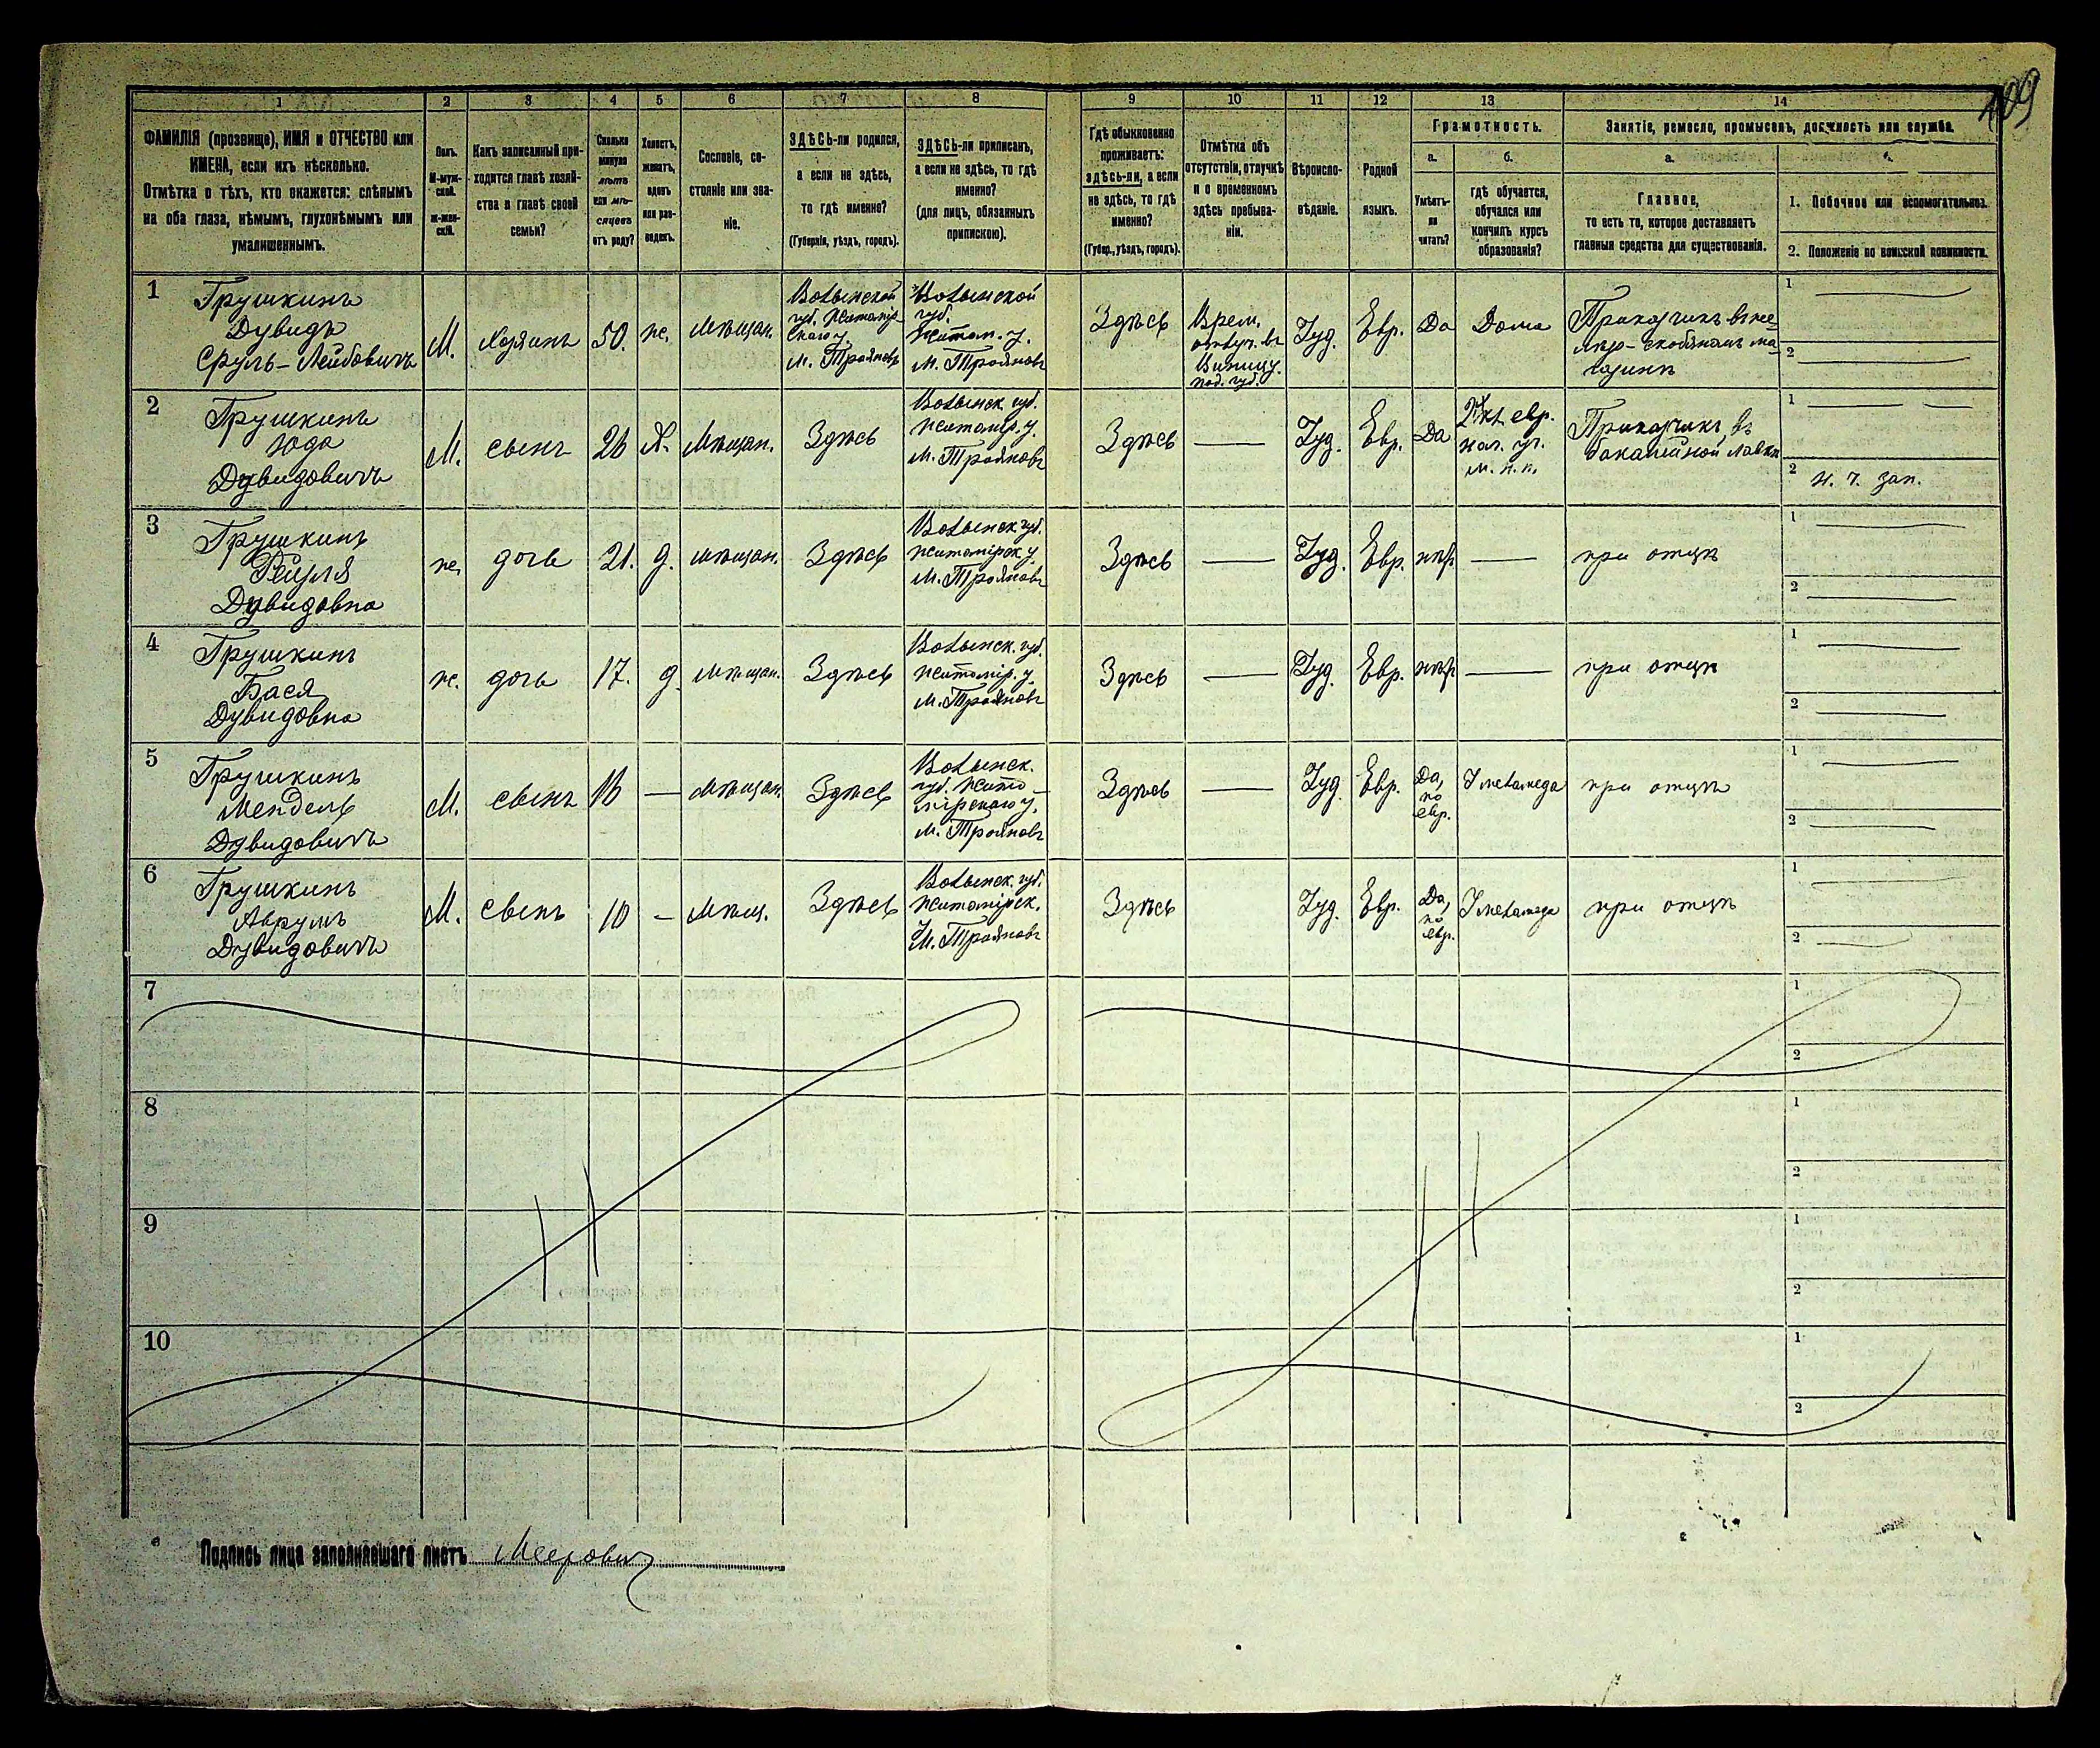 109
1
2
3
4
5
6
7
8
9
10
11
12
13
14
ФАМИЛІЯ (прозвище), ИМЯ и ОТЧЕСТВО или
ИМЕНА, если ихъ нѣсколько.
Отмѣтка о тѣхъ, кто окажется: слѣпымъ
на оба глаза, нѣмымъ, глухонѣмымъ или
умалишеннымъ.
Полъ.
М-муж-
ской.
ж-жен-
скій.
Какъ записанный при-
ходится главѣ хозяй-
ства и главѣ своей
семьи?
Сколько
минуло
лѣтъ
или мѣ-
сяцевъ
отъ роду?
Холостъ,
женатъ,
вдовъ
или раз-
веденъ.
Сословіе, со-
стояніе или зва-
ніе.
ЗДѢСЬ-ли родился,
а если не здѣсь,
то гдѣ именно?
(Губернія, уѣздъ, городъ).
ЗДѢСЬ-ли приписанъ,
а если не здѣсь, то гдѣ
именно?
(для лицъ, обязанныхъ
припискою).
Гдѣ обыкновенно
проживаетъ:
здѣсь-ли, а если
не здѣсь, то гдѣ
именно?
(Губер., уѣздъ, городъ).
Отмѣтка объ
отсутствіи, отлучкѣ
и о временномъ
здѣсь пребыва-
ніи.
Вѣроиспо-
вѣданіе.
Родной
языкъ.
Грамотность.
а.
Умѣетъ-
ли
читать?
б.
гдѣ обучается,
обучался или
кончилъ курсъ
образованія?
Занятіе, ремесло, промыселъ, должность или служба.
а.
Главное,
то есть то, которое доставляетъ
главныя средства для существованія.
б.
1. Побочное или вспомогательное.
2. Положеніе по воинской повинности.
1
Грушкинъ
Дувидъ
Сруль-Лейбовичъ
М.
Хозяинъ
50.
же.
Мѣщан.
Волынской
губ. Житомір-
скаго у.
м. Трояновъ
Волынской
губ.
Житом. у.
м. Трояновъ
Здѣсь
Врем.
отлуч. въ
Виницу.
Под. губ.
Іуд.
Евр.
Да
Дома
Приказчикъ въ же-
лѣзо-скобяномъ ма-
газинѣ
1
2
2
Грушкинъ
Юда
Дувидовичъ
М.
сынъ
26
Х.
Мѣщан.
Здѣсь
Волынск. губ.
Житомір. у.
м. Трояновъ
Здѣсь
Іуд.
Евр.
Да
2 кл. евр.
нач. уч.
м. н. п.
Приказчикъ въ
бакалейной лавкѣ
1
2 н. ч. зап.
3
Грушкинъ
Рейзля
Дувидовна
же.
дочь
21.
д.
мѣщан.
Здѣсь
Волынск. губ.
Житомірск. у.
м. Трояновъ
Здѣсь
Іуд.
Евр.
нѣт
при отцѣ
1
2
4
Грушкинъ
Бася
Дувидовна
же.
дочь
17.
д.
мѣщан.
Здѣсь
Волынск. губ.
Житомір. у.
м. Трояновъ
Здѣсь
Іуд.
Евр.
нѣт
при отцѣ
1
2
5
Грушкинъ
Мендель
Дувидовичъ
М.
сынъ
16
мѣщан.
Здѣсь
Волынск.
губ. Жито-
мірскаго у.
м. Трояновъ
Здѣсь
Іуд.
Евр.
Да,
по
евр.
У меламеда
при отцѣ
1
2
6
Грушкинъ
Аврумъ
Дувидовичъ
М.
сынъ
10
мѣщ.
Здѣсь
Волынск. губ.
Житомірск.
м. Трояновъ
Здѣсь
Іуд.
Евр.
Да,
по
евр.
У меламеда
при отцѣ
1
2
7
1
2
8
1
2
9
1
2
10
1
2
Подпись лица заполнявшаго листъ Меерович